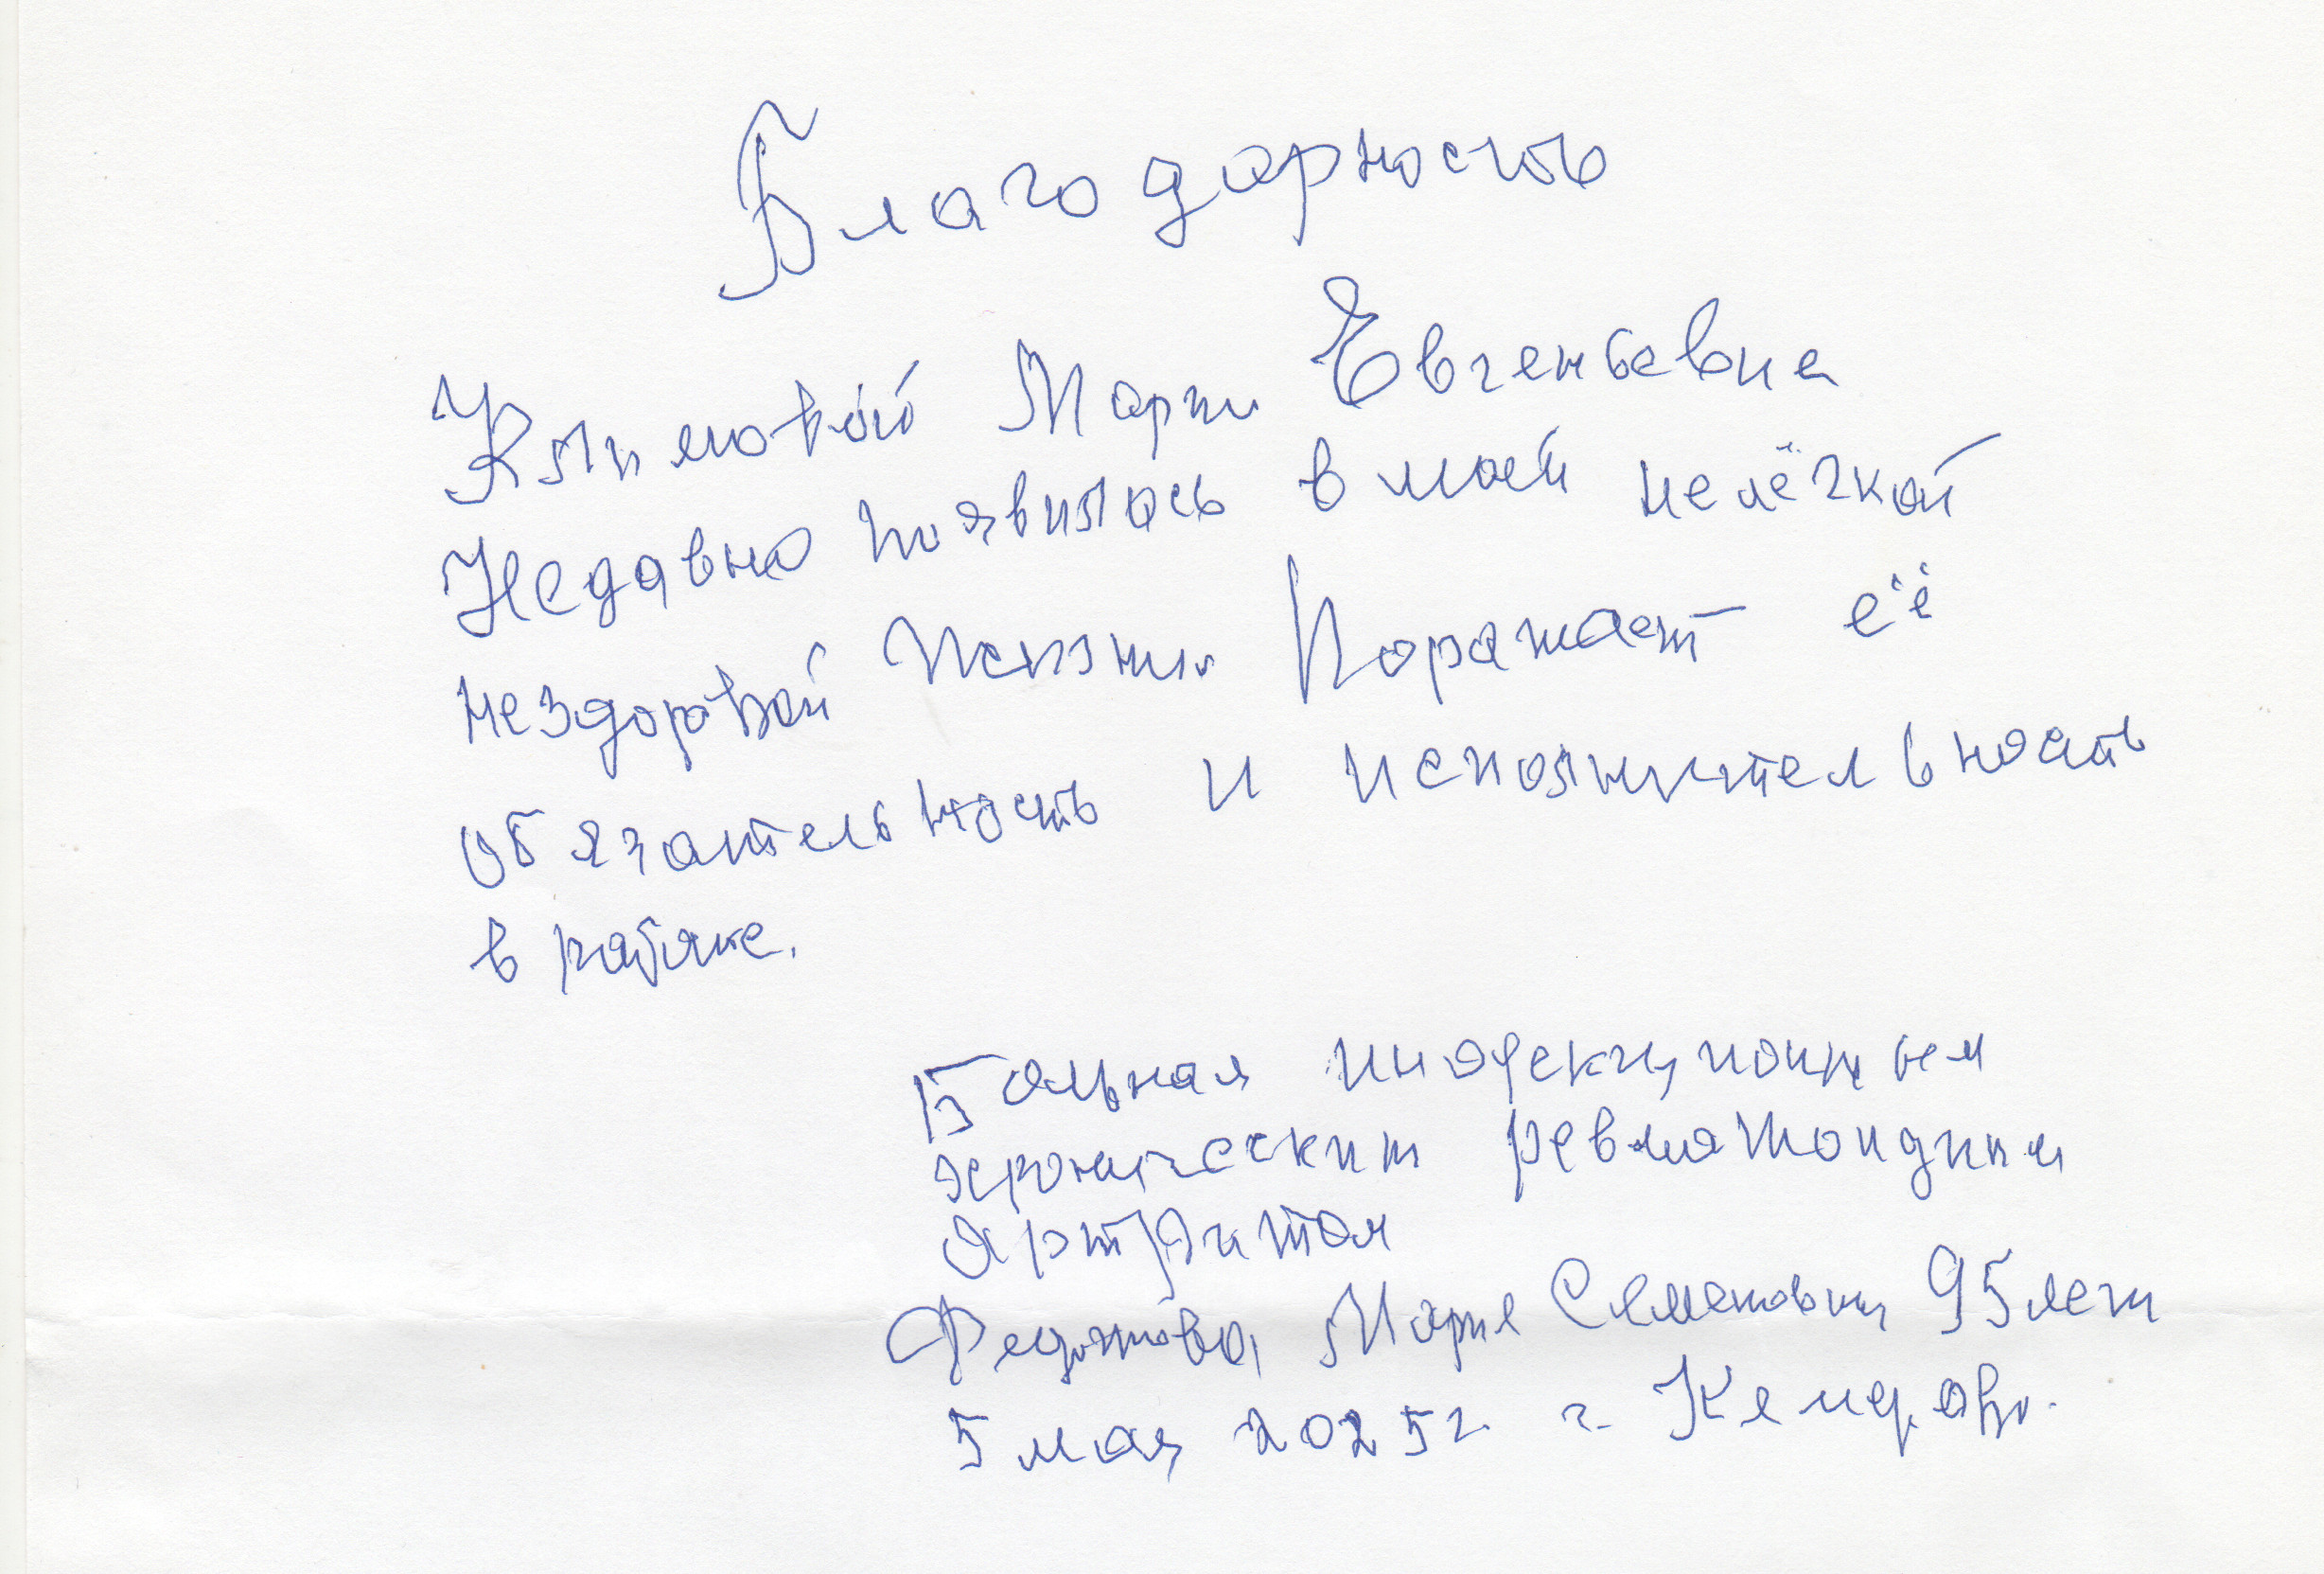 Благодарность
Климовой Марии Евгеньевне
Недавно появилась в моей нелёгкой
нездоровой жизни. Поражает её
обязательность и исполнительность
в работе.
Больная инфекционным
хроническим ревматоидным
артритом
Федотова Мария Семёновна 95 лет
5 мая 2025 г. г. Кемерово.